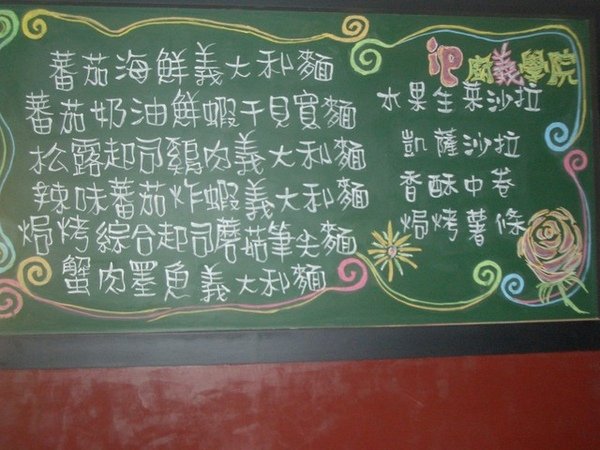 蕃茄海鮮義大利麵
蕃茄奶油鮮蝦干貝寬麵
松露起司鷄肉義大利麵
辣味蕃茄炸蝦義大利麵
焗烤綜合起司蘑菇筆尖麵
蟹肉墨魚義大利麵
ip 廚義學院
水果生菜沙拉
凱薩沙拉
香酥中卷
焗烤薯條